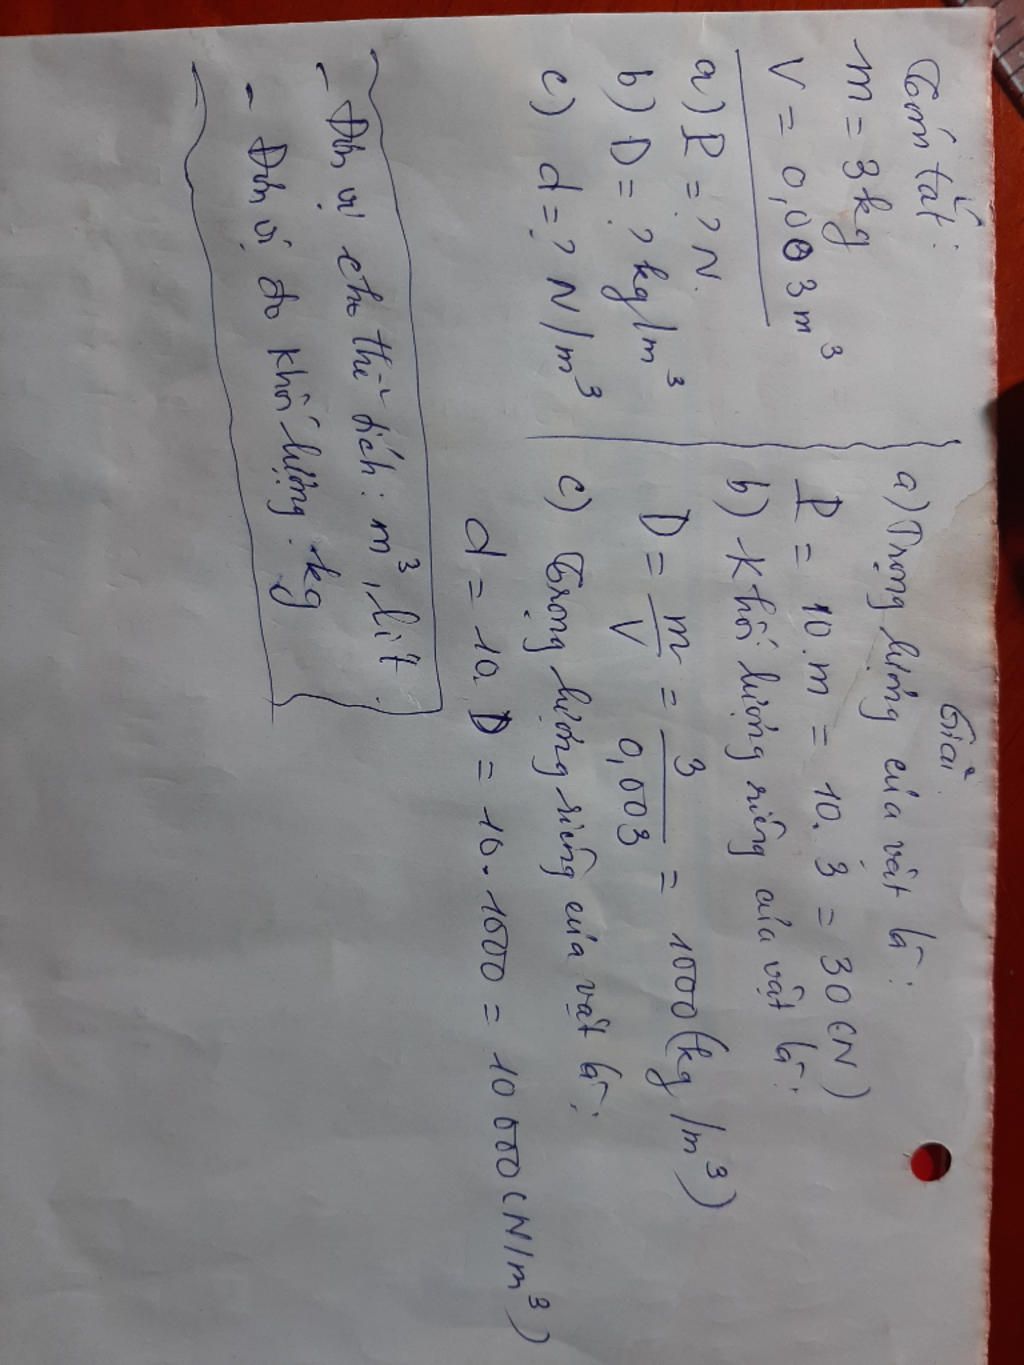 Tóm tắt:
m = 3kg
V = 0,003m³
a) P = ? N.
b) D = ? kg/m³
c) d = ? N/m³
Giải
a) Trọng lượng của vật là:
P = 10.m = 10.3 = 30(N)
b) Khối lượng riêng của vật là:
D = m/V = 3/0,003 = 1000(kg/m³)
c) Trọng lượng riêng của vật là:
d = 10.D = 10.1000 = 10000(N/m³)
- Đơn vị cho thể tích: m³, lít.
- Đơn vị đo khối lượng: kg